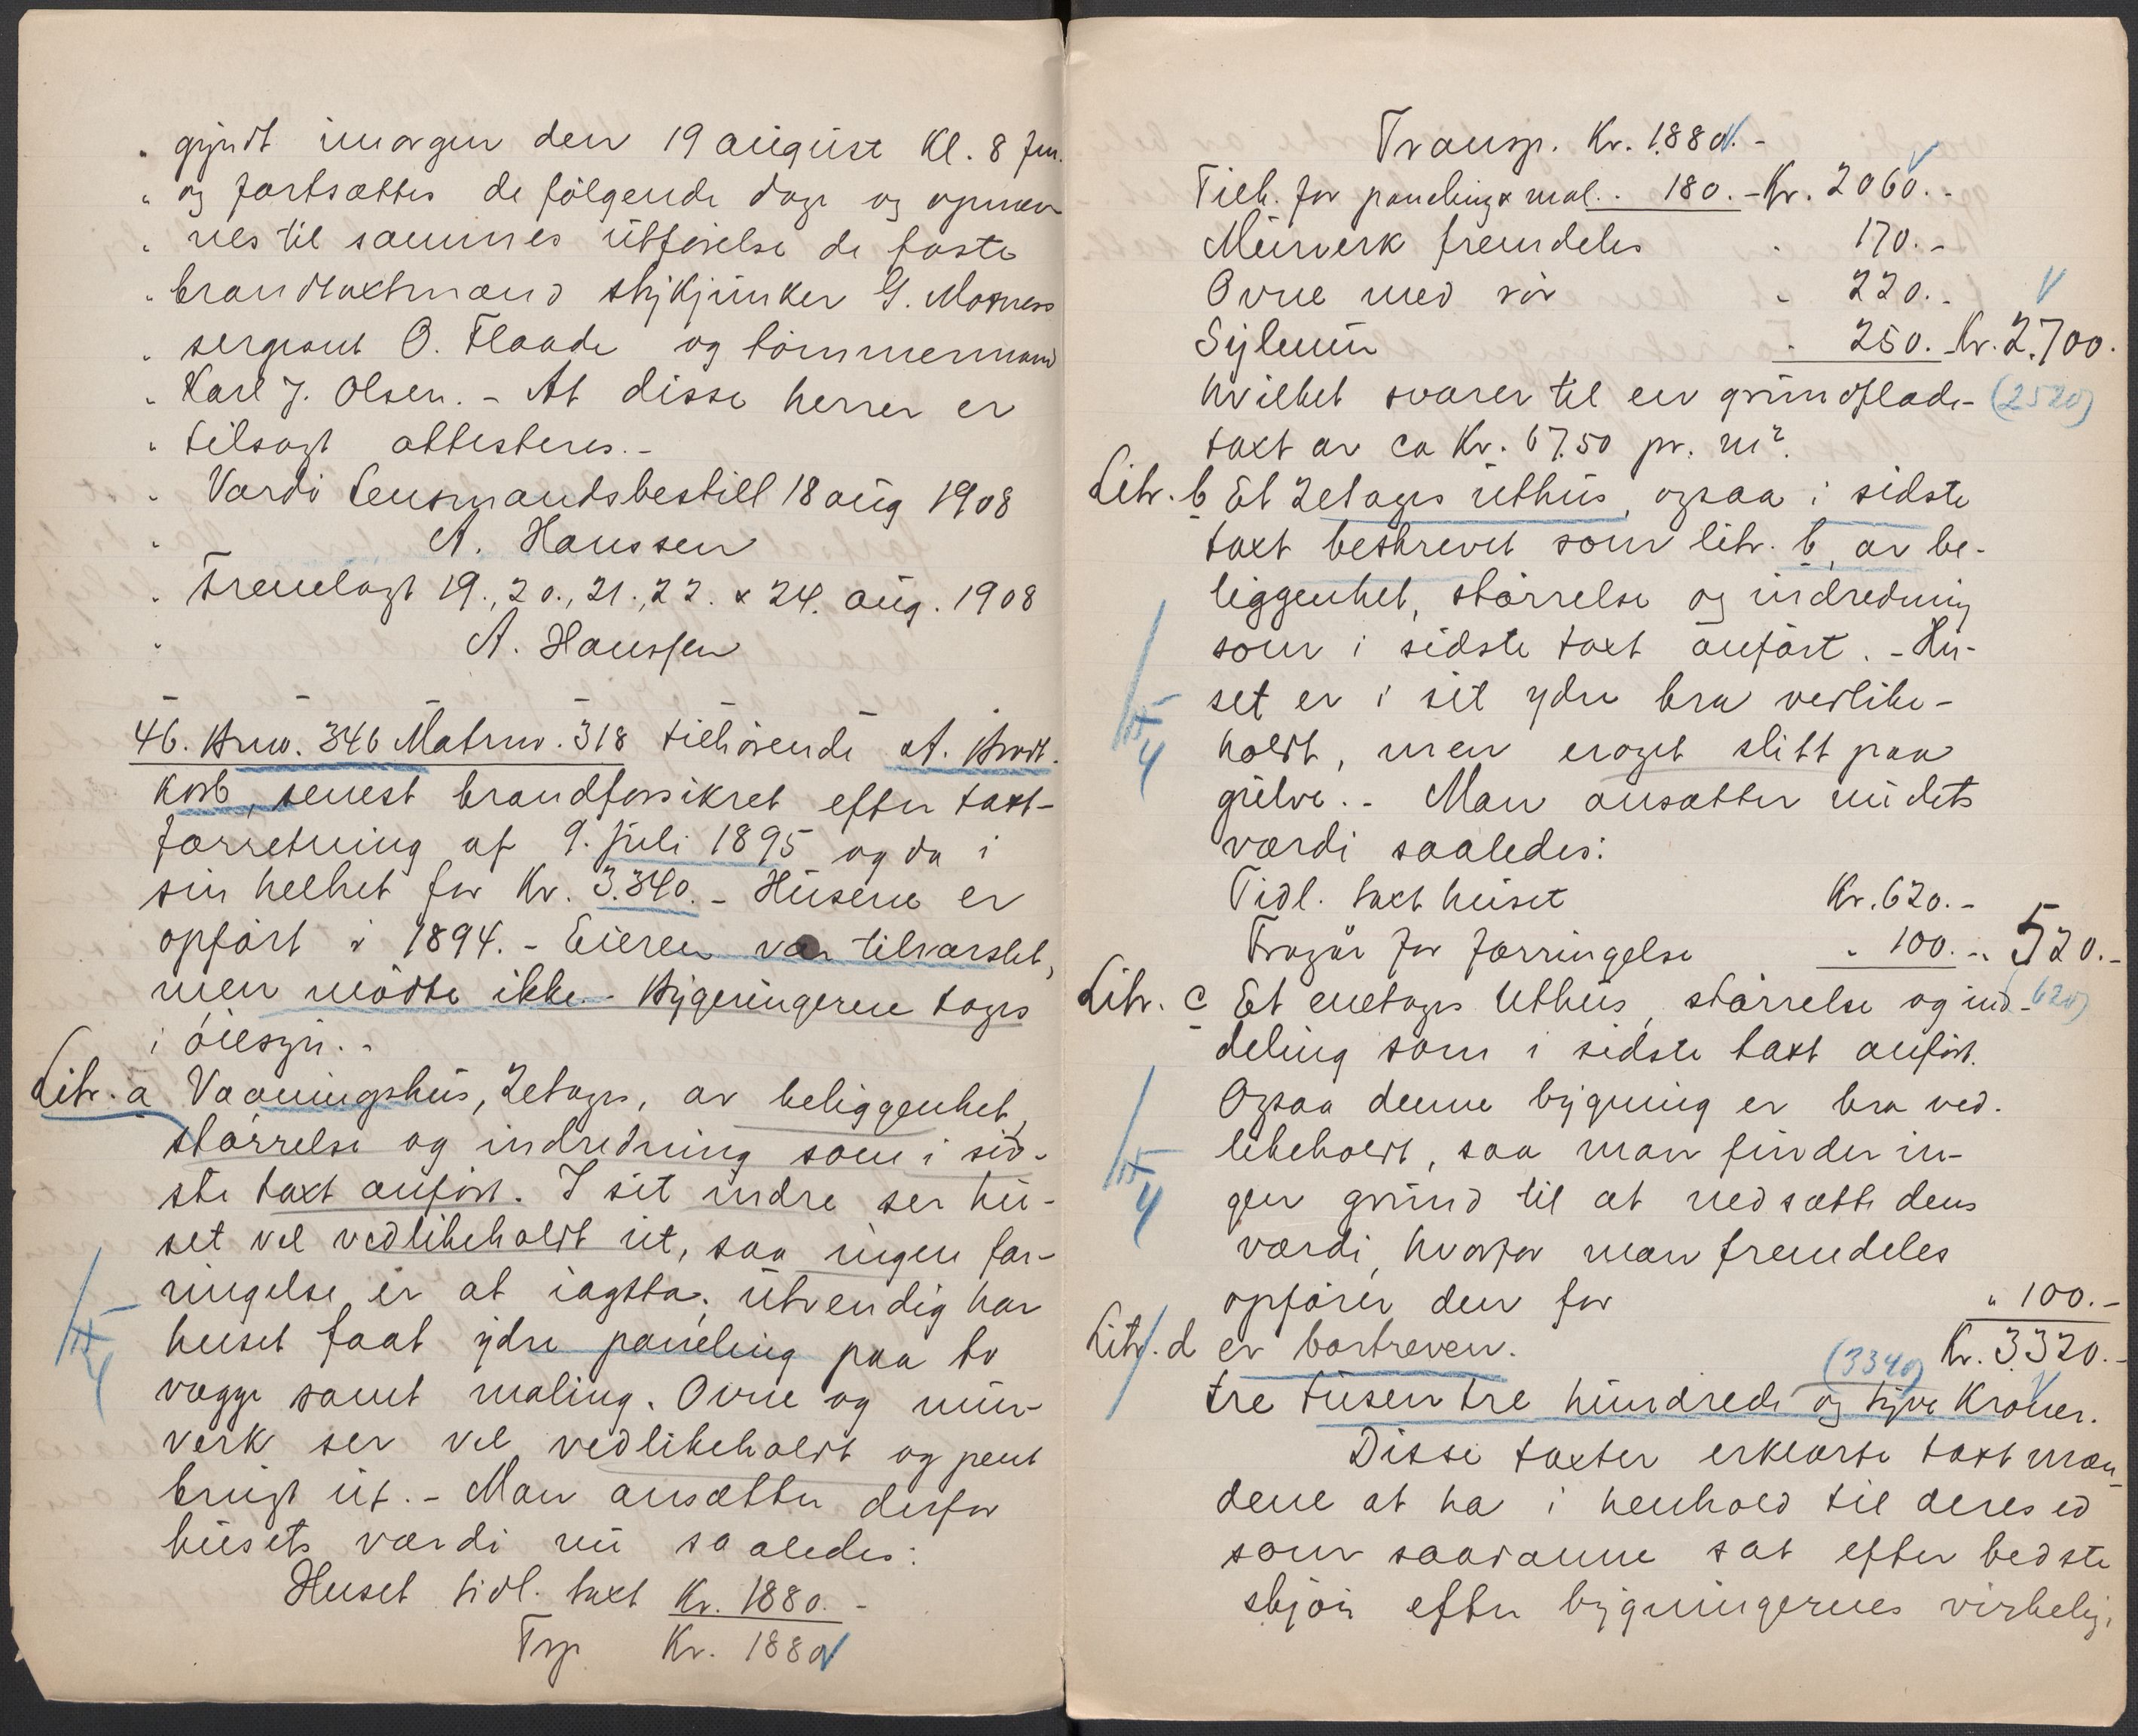 " gyndt imorgen den 19 august Kl. 8 fm.
" og fortsættes de følgende dage og opnæv
" nes til sammes utførelse de faste
" brandtaxtmænd skykjunker G. Mosness
" sergeant O. Flaade og tømmermand
" Karl J. Olsen. - At disse herrer er
" tilsagt attesteres. -
" Vardø Lensmandsbestill 18 aug 1908
" A. Hanssen
" Fremlagt 19., 20., 21., 22. & 24. aug. 1908
" A. Hanssen
46. Brno. 346 Matrno. 318 tilhørende A. Brodt-
korb, senest brandforsikret efter taxt-
forretning af 9. juli 1895 og da i
sin helhet for Kr. 3.340. - Husene er
opført i 1894. - Eieren var tilvarslet,
men mødte ikke. - Bygningerne toges
i øiesyn. -
Litr. a Vaaningshus, 2etages, av beliggenhet,
størrelse og indredning som i sid-
ste taxt anført. I sit indre ser hu-
set vel vedlikeholdt ut, saa ingen for-
ringelse er at iagtta; utvendig har
huset faat ydre paneling paa to
vægge samt maling. Ovne og mur-
verk ser vel vedlikeholdt og pent
brugt ut. - Man ansætter derfor
husets værdi nu saaledes:
Huset tidl. taxt Kr. 1880. -
Trp. Kr. 1880
Transp. Kr. 1.880. -
Till. for paneling & mal. . 180. - Kr. 2060. -
Murverk fremdeles " 170. -
Ovne med rør " 220. -
Sylmur " 250. - Kr. 2.700.
hvilket svarer til en grundflade- (2520)
taxt av ca Kr. 67.50 pr. m².
Litr. b Et 2etages uthus, ogsaa i sidste
taxt beskrevet som litr. b, av be-
liggenhet, størrelse og indredning
som i sidste taxt anført. - Hu-
set er i sit ydre bra vedlike-
holdt, men noget slitt paa
gulve. - Man ansætter nu dets
værdi saaledes:
Tidl. taxt huset Kr. 620. -
Fragår for forringelse " 100. - " 520. -
Litr. c Et enetages Uthus, størrelse og ind- (620)
deling som i sidste taxt anført.
Ogsaa denne bygning er bra ved-
likeholdt, saa man finder in-
gen grund til at nedsætte dens
værdi, hvorfor man fremdeles
opfører den for " 100. -
Litr. d er bortreven. Kr. 3.320. -
(3340)
tre tusen tre hundrede og tyve Kroner.
Disse taxter erklærte taxtmæn-
dene at ha i henhold til deres ed
som saadanne sat efter bedste
skjøn efter bygningernes virkelig,